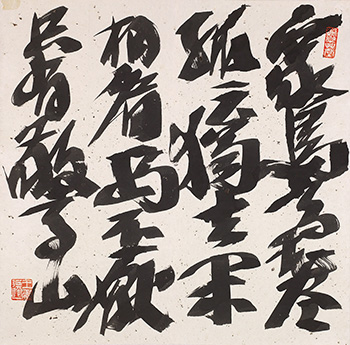 眾鳥高飛盡
孤云獨去閑
相看兩不厭
只有敬亭山